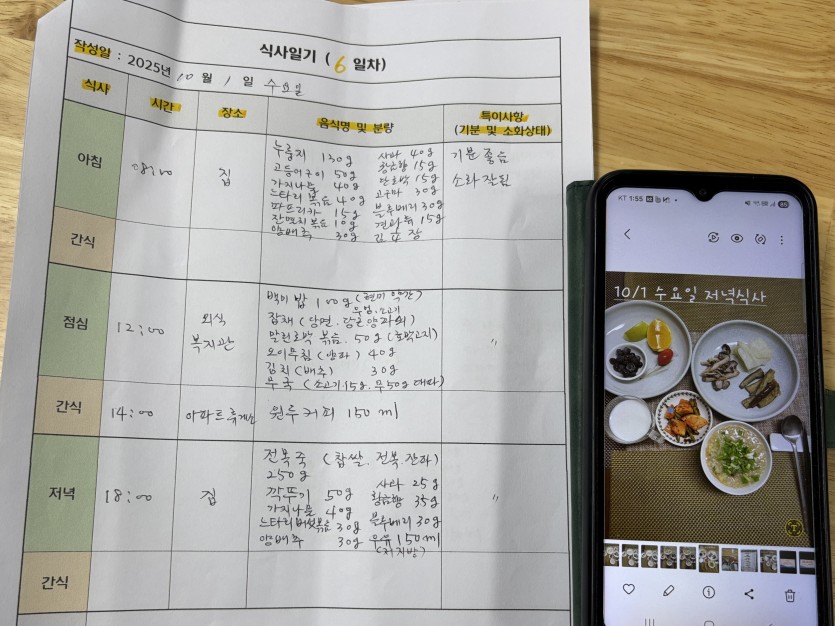 식사일기 ( 6 일차)
작성일 : 2025년 10 월 1 일 수요일
식사 시간 장소 음식명 및 분량 특이사항
(기분 및 소화상태)
아침 08:00 집
누룽지 130g 사과 40g 기분 좋음
고등어구이 50g 황금향 15g
가지나물 40g 단호박 15g 소화 잘됨
느타리 볶음 40g 고구마 30g
파프리카 15g 블루베리 30g
잔멸치볶음 10g 견과류 15g
양배추 30g
간식
점심 12:00 외식
복지관
백미 밥 100g (현미 약간)
우엉.소고기
잡채 (당면.당근 양파외)
말린호박 볶음. 50g (호박고지)
오이무침 (양파) 40g 〃
김치 (배추) 30g
무국 (소고기 15g. 무50g 대파)
간식 14:00 아파트휴게소 원루커피 150 ml
저녁 18:00 집
전복죽 (찹쌀.전복.잔파)
250g 사과 25g
깍뚜기 50g 황금향 35g 〃
가지나물 40g
느타리버섯볶음 30g 블루베리 30g
양배추 30g 우유 150ml
(저지방)
간식
KT 1:55
10/1 수요일 저녁식사